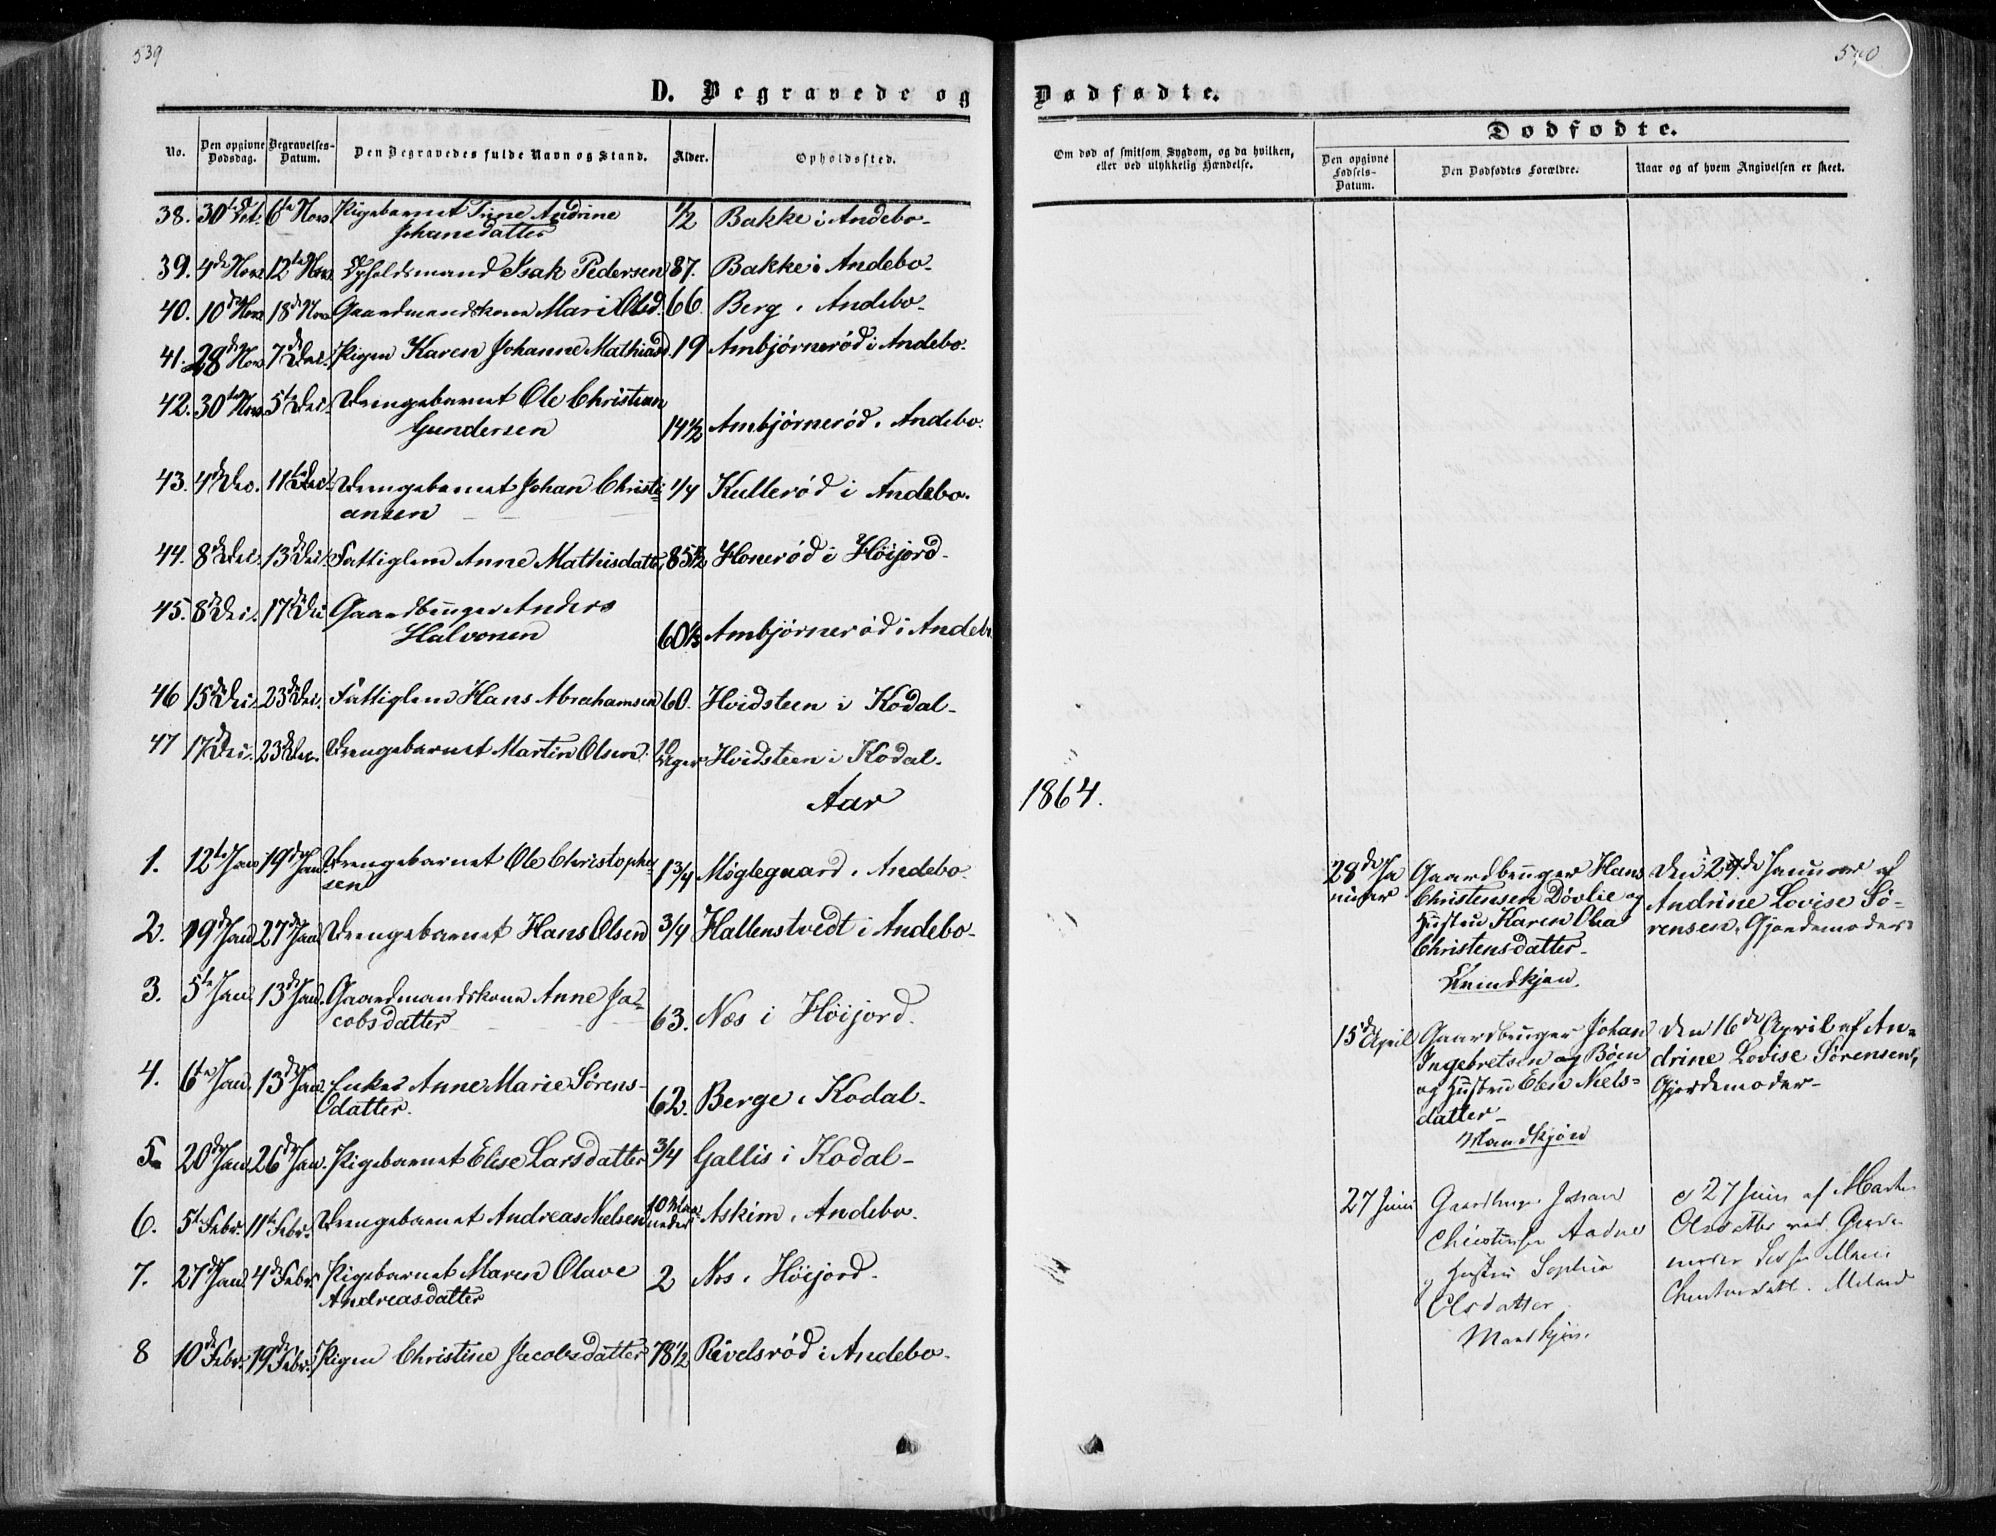 539
540
D. Begravede og
Dødfødte.
No.
Den opgivne Dødsdag.
Begravelses-Datum.
Den Begravedes fulde Navn og Stand.
Alder.
Opholdssted.
Om død af smitsom Sygdom, og da hvilken,
eller ved ulykkelig Hændelse.
Dødfødte.
Den opgivne Fødsels-Datum.
Den Dødfødtes Forældre.
Naar og af hvem Angivelsen er skeet.
38. 30te Oct. 6te Nov. Pigebarnet Trine Andrine 1/2 Bakke i Andebo.
Johansdatter
39. 4de Nov. 12te Nov. Opholdsmand Isak Pedersen 87. Bakke i Andebo.
40. 10de Nov. 18de Nov Gaardmandskone Mari Olsd. 66. Berg i Andebo.
41. 28de Nov 7de Dec. Pigen Karen Johanne Mathiasd. 19 Ambjørnerød i Andebo.
42. 30te Nov. 5te Dec. Drengebarnet Ole Christian
Gundersen 14 1/2 Ambjørnerød i Andebo.
43. 4de Dec. 11te Dec. Drengebarnet Johan Christi- 1/4 Kullerød i Andebo.
ansen
44. 8de Dec. 13de Dec. Fattiglem Anne Mathisdatt. 85 1/2 Honerød i Høijord.
45. 8de Dec. 17de Dec Gaardbruger Anders
Halvorsen 60 1/2 Ambjørnerød i Andebo
46 15de Dec. 23de Dec. Fattiglem Hans Abrahamsen 60. Hvidsteen i Kodal.
47 17de Dec. 23de Dec. Drengebarnet Martin Olsen. 10 Uger Hvidsteen i Kodal.
Aar 1864.
1. 12te Jan 19de Jan. Drengebarnet Ole Christopher- 1 3/4 Møglegaard i Andebo.
sen
2. 19de Jan 27de Jan. Drengebarnet Hans Olsen 3/4 Hallenstvedt i Andebo.
3. 5te Jan. 13de Jan. Gaardmandskone Anne Ja-
cobsdatter 63. Næs i Høijord.
4. 6te Jan. 13de Jan. Enken Anne Marie Sørens-
datter. 62. Berge i Kodal.
5 20de Jan. 26de Jan. Pigebarnet Elise Larsdatter 3/4 Gallis i Kodal.
6. 5te Febr. 11te Febr. Drengebarnet Andreas Nielsen 10 Maaneder Askim i Andebo.
7. 27de Jan. 4de Febr. Pigebarnet Maren Olave 2 Næs i Høijord.
Andreasdatter
8 10de Febr. 19de Febr. Pigen Christine Jacobsdatter 78 1/2 Rivelsrød i Andebo.
28de Ja
nuar
Gaardbruger Hans
Christensen Døvlie og
Hustru Karen Olea
Christensdatter.
Kvindkjøn.
Den 29de Januar af
Andrine Lovise Sø-
rensen, Gjordemoder.
15de April
Gaardbruger Johan
Ingebretsen og Bøen
og Hustru Elen Niels-
datter
Mandkjøn
Den 16de April af An-
drine Lovise Sørensen,
Gjordemoder
27 Juni
Gaardbruger Johan
Christensen
og Hustru Sophie
Olsdatter
Mandkjøn.
d 27 Juni af
Olsdatter ved Gjorde-
moder